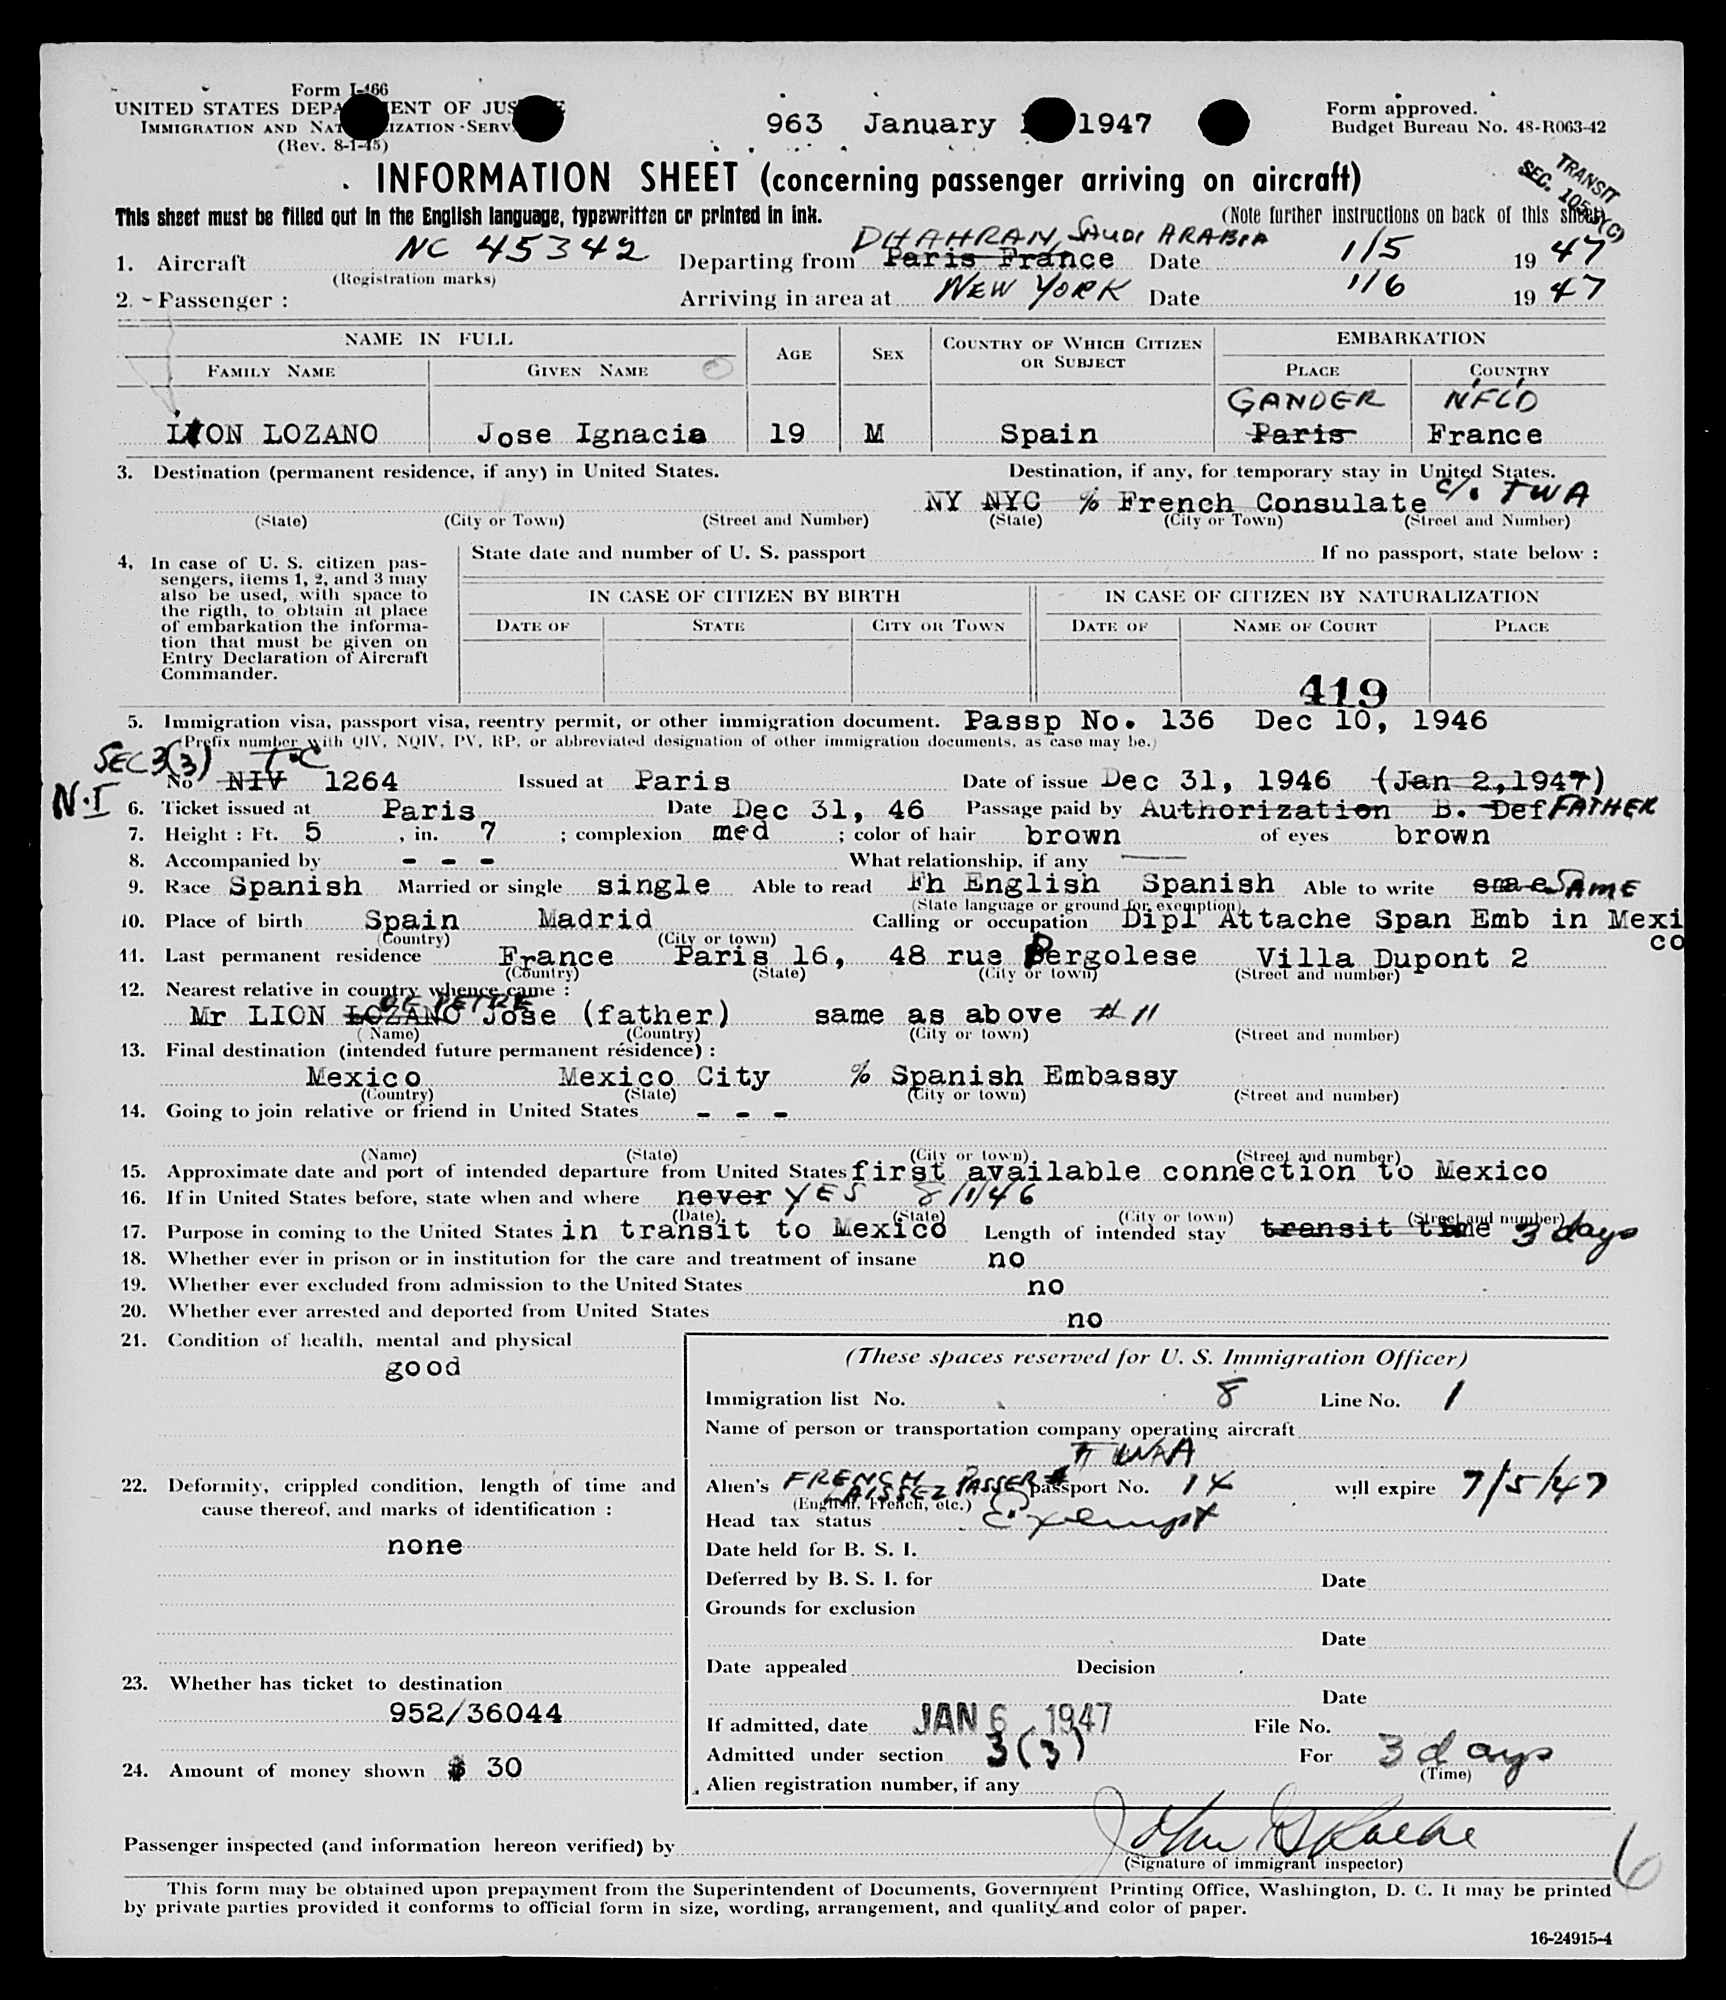 Form I-466
UNITED STATES DEPA ENT OF JUS E
IMMIGRATION AND NAT IZATION SERV
(Rev. 8-1-45)
963 January 1947
Form approved.
Budget Bureau No. 48-R063-42
INFORMATION SHEET (concerning passenger arriving on aircraft)
TRANSIT
SEC. 105.3(C)
This sheet must be filled out in the English language, typewritten or printed in ink.
(Note further instructions on back of this sheet)
DHAHRAN, SAUDI ARABIA
1. Aircraft NC 45342 Departing from Paris France Date 1/5 19 47
(Registration marks)
2. Passenger : Arriving in area at NEW YORK Date 1/6 19 47
NAME IN FULL
AGE
SEX
COUNTRY OF WHICH CITIZEN OR SUBJECT
EMBARKATION
FAMILY NAME GIVEN NAME PLACE COUNTRY
GANDER NFLD
LION LOZANO Jose Ignacia 19 M Spain Paris France
3. Destination (permanent residence, if any) in United States. Destination, if any, for temporary stay in United States.
NY NYC % French Consulate c/. TWA
(State) (City or Town) (Street and Number) (State) (City or Town) (Street and Number)
4. In case of U. S. citizen pas-
sengers, items 1, 2, and 3 may
also be used, with space to
the rigth, to obtain at place
of embarkation the informa-
tion that must be given on
Entry Declaration of Aircraft
Commander.
State date and number of U. S. passport If no passport, state below :
IN CASE OF CITIZEN BY BIRTH IN CASE OF CITIZEN BY NATURALIZATION
DATE OF STATE CITY OR TOWN DATE OF NAME OF COURT PLACE
419
5. Immigration visa, passport visa, reentry permit, or other immigration document. Passp No. 136 Dec 10, 1946
(Prefix number with QIV, NQIV, PV, RP, or abbreviated designation of other immigration documents, as case may be.)
SEC 3(3) T.C
No NIV 1264 Issued at Paris Date of issue Dec 31, 1946 (Jan 2,1947)
N.I
6. Ticket issued at Paris Date Dec 31, 46 Passage paid by Authorization B. Def FATHER
7. Height : Ft. 5 , in. 7 ; complexion med ; color of hair brown of eyes brown
8. Accompanied by - - - What relationship, if any
9. Race Spanish Married or single single Able to read Fh English Spanish Able to write smae SAME
(State language or ground for exemption)
10. Place of birth Spain Madrid Calling or occupation Dipl Attache Span Emb in Mexi
co
(Country) (City or town)
11. Last permanent residence France Paris 16, 48 rue Pergolese Villa Dupont 2
(Country) (State) (City or town) (Street and number)
12. Nearest relative in country whence came :
DE PETRE
Mr LION LOZANO Jose (father) same as above # 11
(Name) (Country) (City or town) (Street and number)
13. Final destination (intended future permanent résidence) :
Mexico Mexico City % Spanish Embassy
(Country) (State) (City or town) (Street and number)
14. Going to join relative or friend in United States - - -
(Name) (State) (City or town) (Street and number)
15. Approximate date and port of intended departure from United States first available connection to Mexico
16. If in United States before, state when and where never YES 8/1/46
(Date) (State) (City or town) (Street and number)
17. Purpose in coming to the United States in transit to Mexico Length of intended stay transit time 3 days
18. Whether ever in prison or in institution for the care and treatment of insane no
19. Whether ever excluded from admission to the United States no
20. Whether ever arrested and deported from United States no
21. Condition of health, mental and physical
good
22. Deformity, crippled condition, length of time and
cause thereof, and marks of identification :
none
23. Whether has ticket to destination
952/36044
24. Amount of money shown $ 30
(These spaces reserved for U. S. Immigration Officer)
Immigration list No. 8 Line No. 1
Name of person or transportation company operating aircraft
TWA
Alien's FRENCH LAISSEZ PASSER passport No. 14 will expire 7/5/47
(English, French, etc.)
Head tax status Exempt
Date held for B. S. I.
Deferred by B. S. I. for Date
Grounds for exclusion
Date
Date appealed Decision
Date
If admitted, date JAN 6 1947 File No.
Admitted under section 3(3) For 3 days
(Time)
Alien registration number, if any
Passenger inspected (and information hereon verified) by John
(Signature of immigrant inspector)
6
This form may be obtained upon prepayment from the Superintendent of Documents, Government Printing Office, Washington, D. C. It may be printed
by private parties provided it conforms to official form in size, wording, arrangement, and quality and color of paper.
16-24915-4